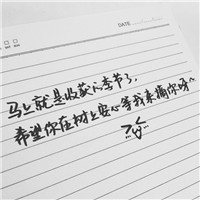 DATE
马上就是收获的季节了,
希望你在树上安心等我来摘你呀~